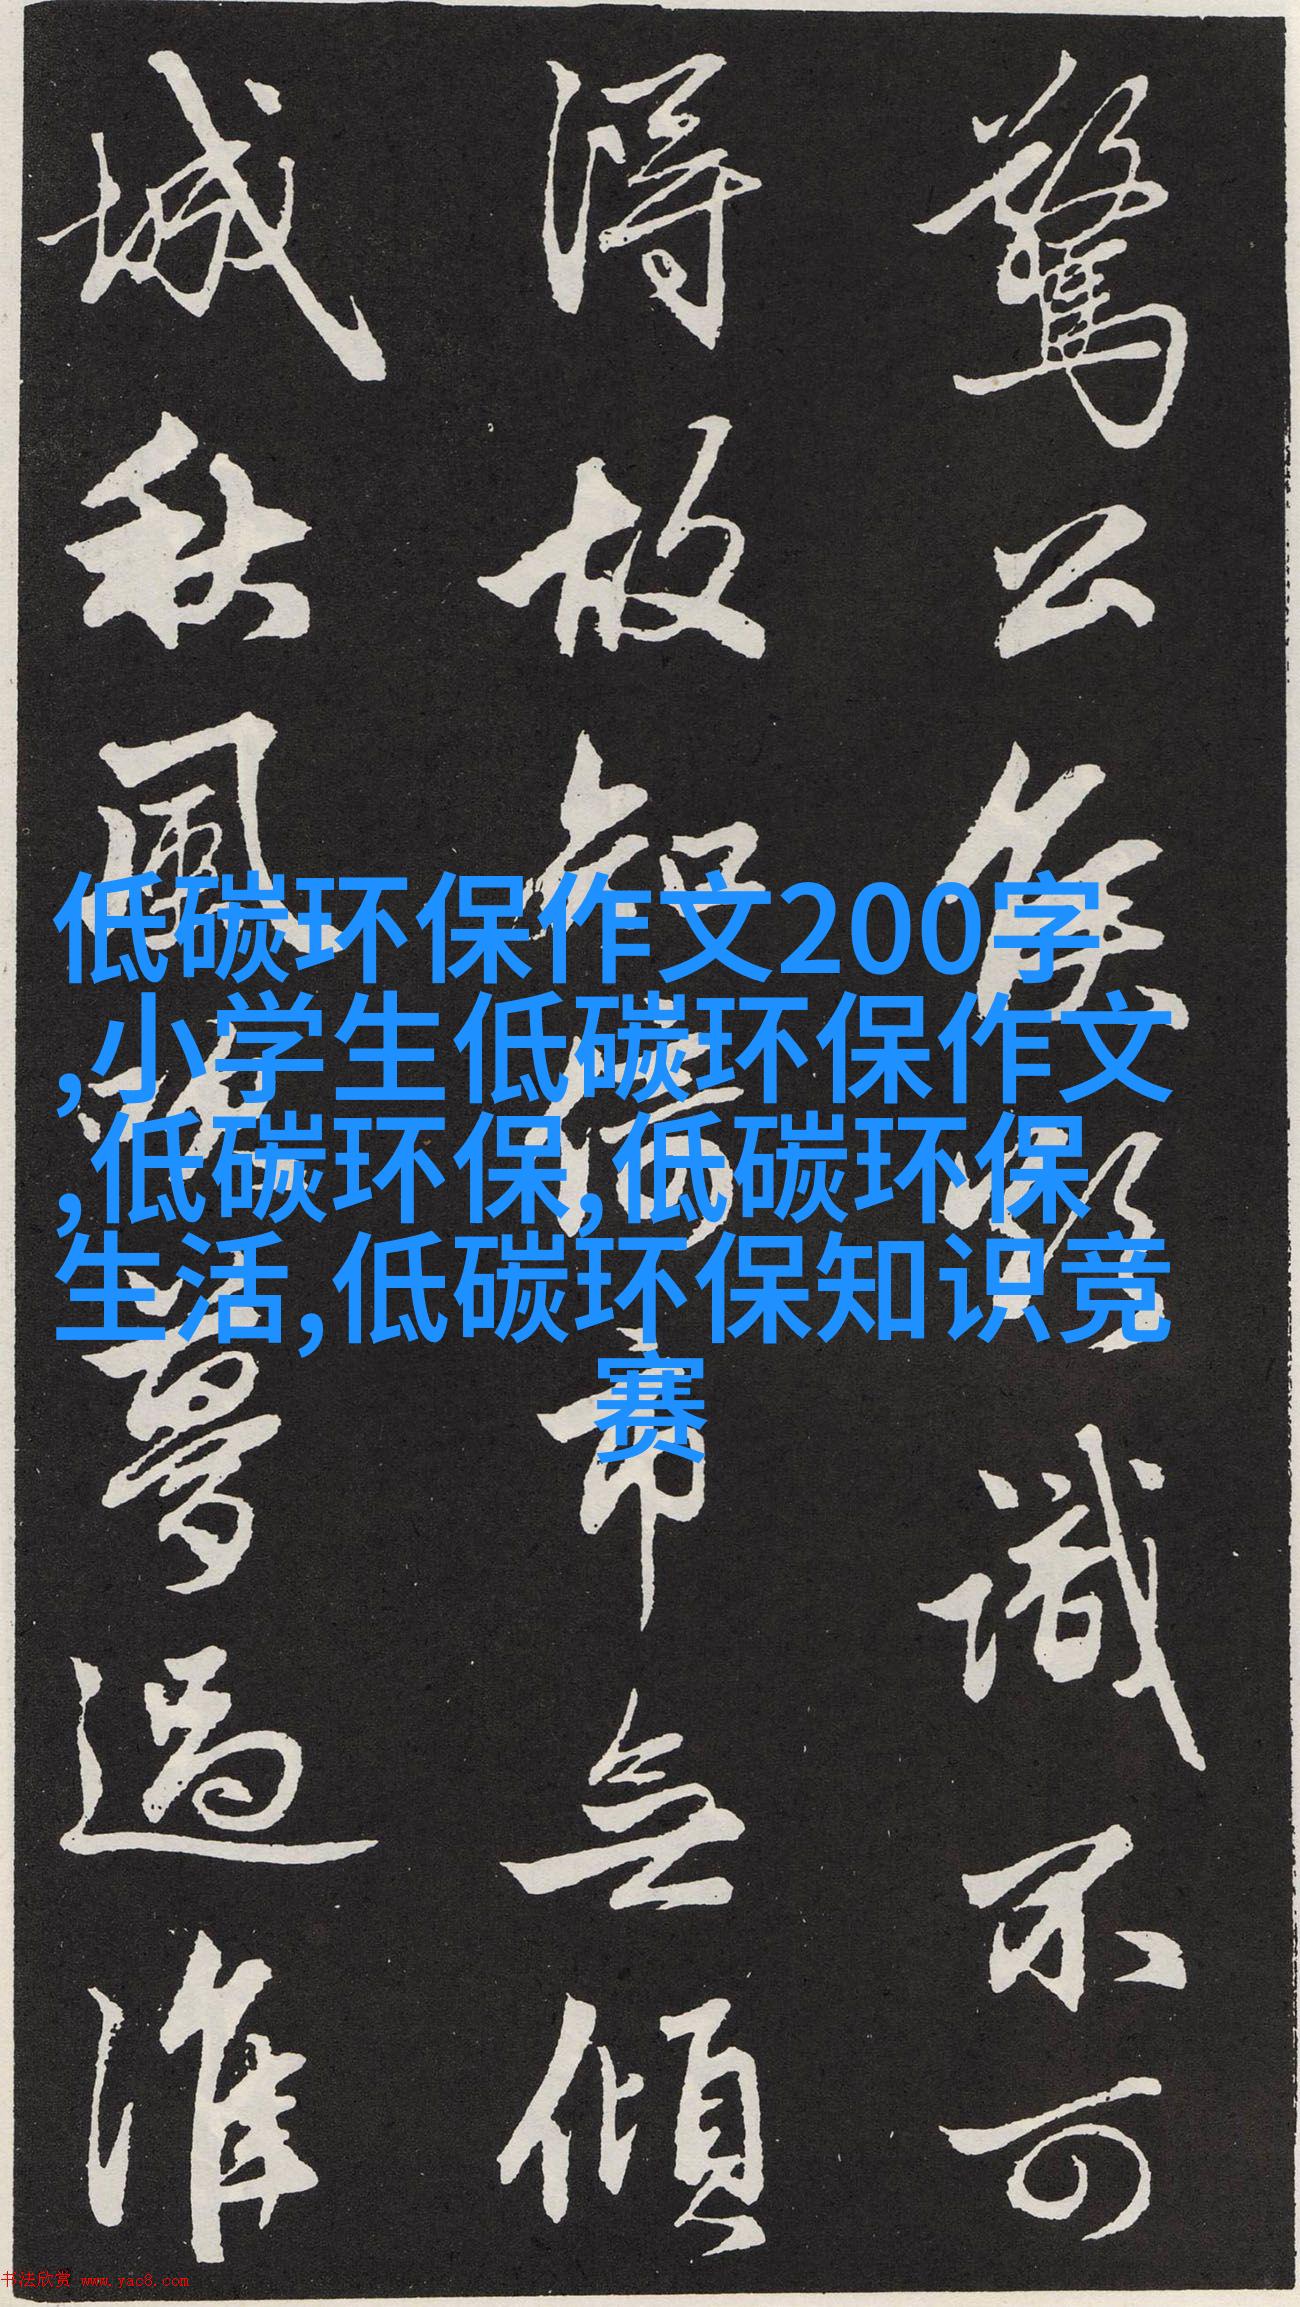 驚公侯欲識不可
得故知倚市无傾
城秋風吹夢過淮
低碳环保作文200字
,小学生低碳环保作文
,低碳环保,低碳环保
生活,低碳环保知识竞
赛
书法欣赏 www.yac8.com